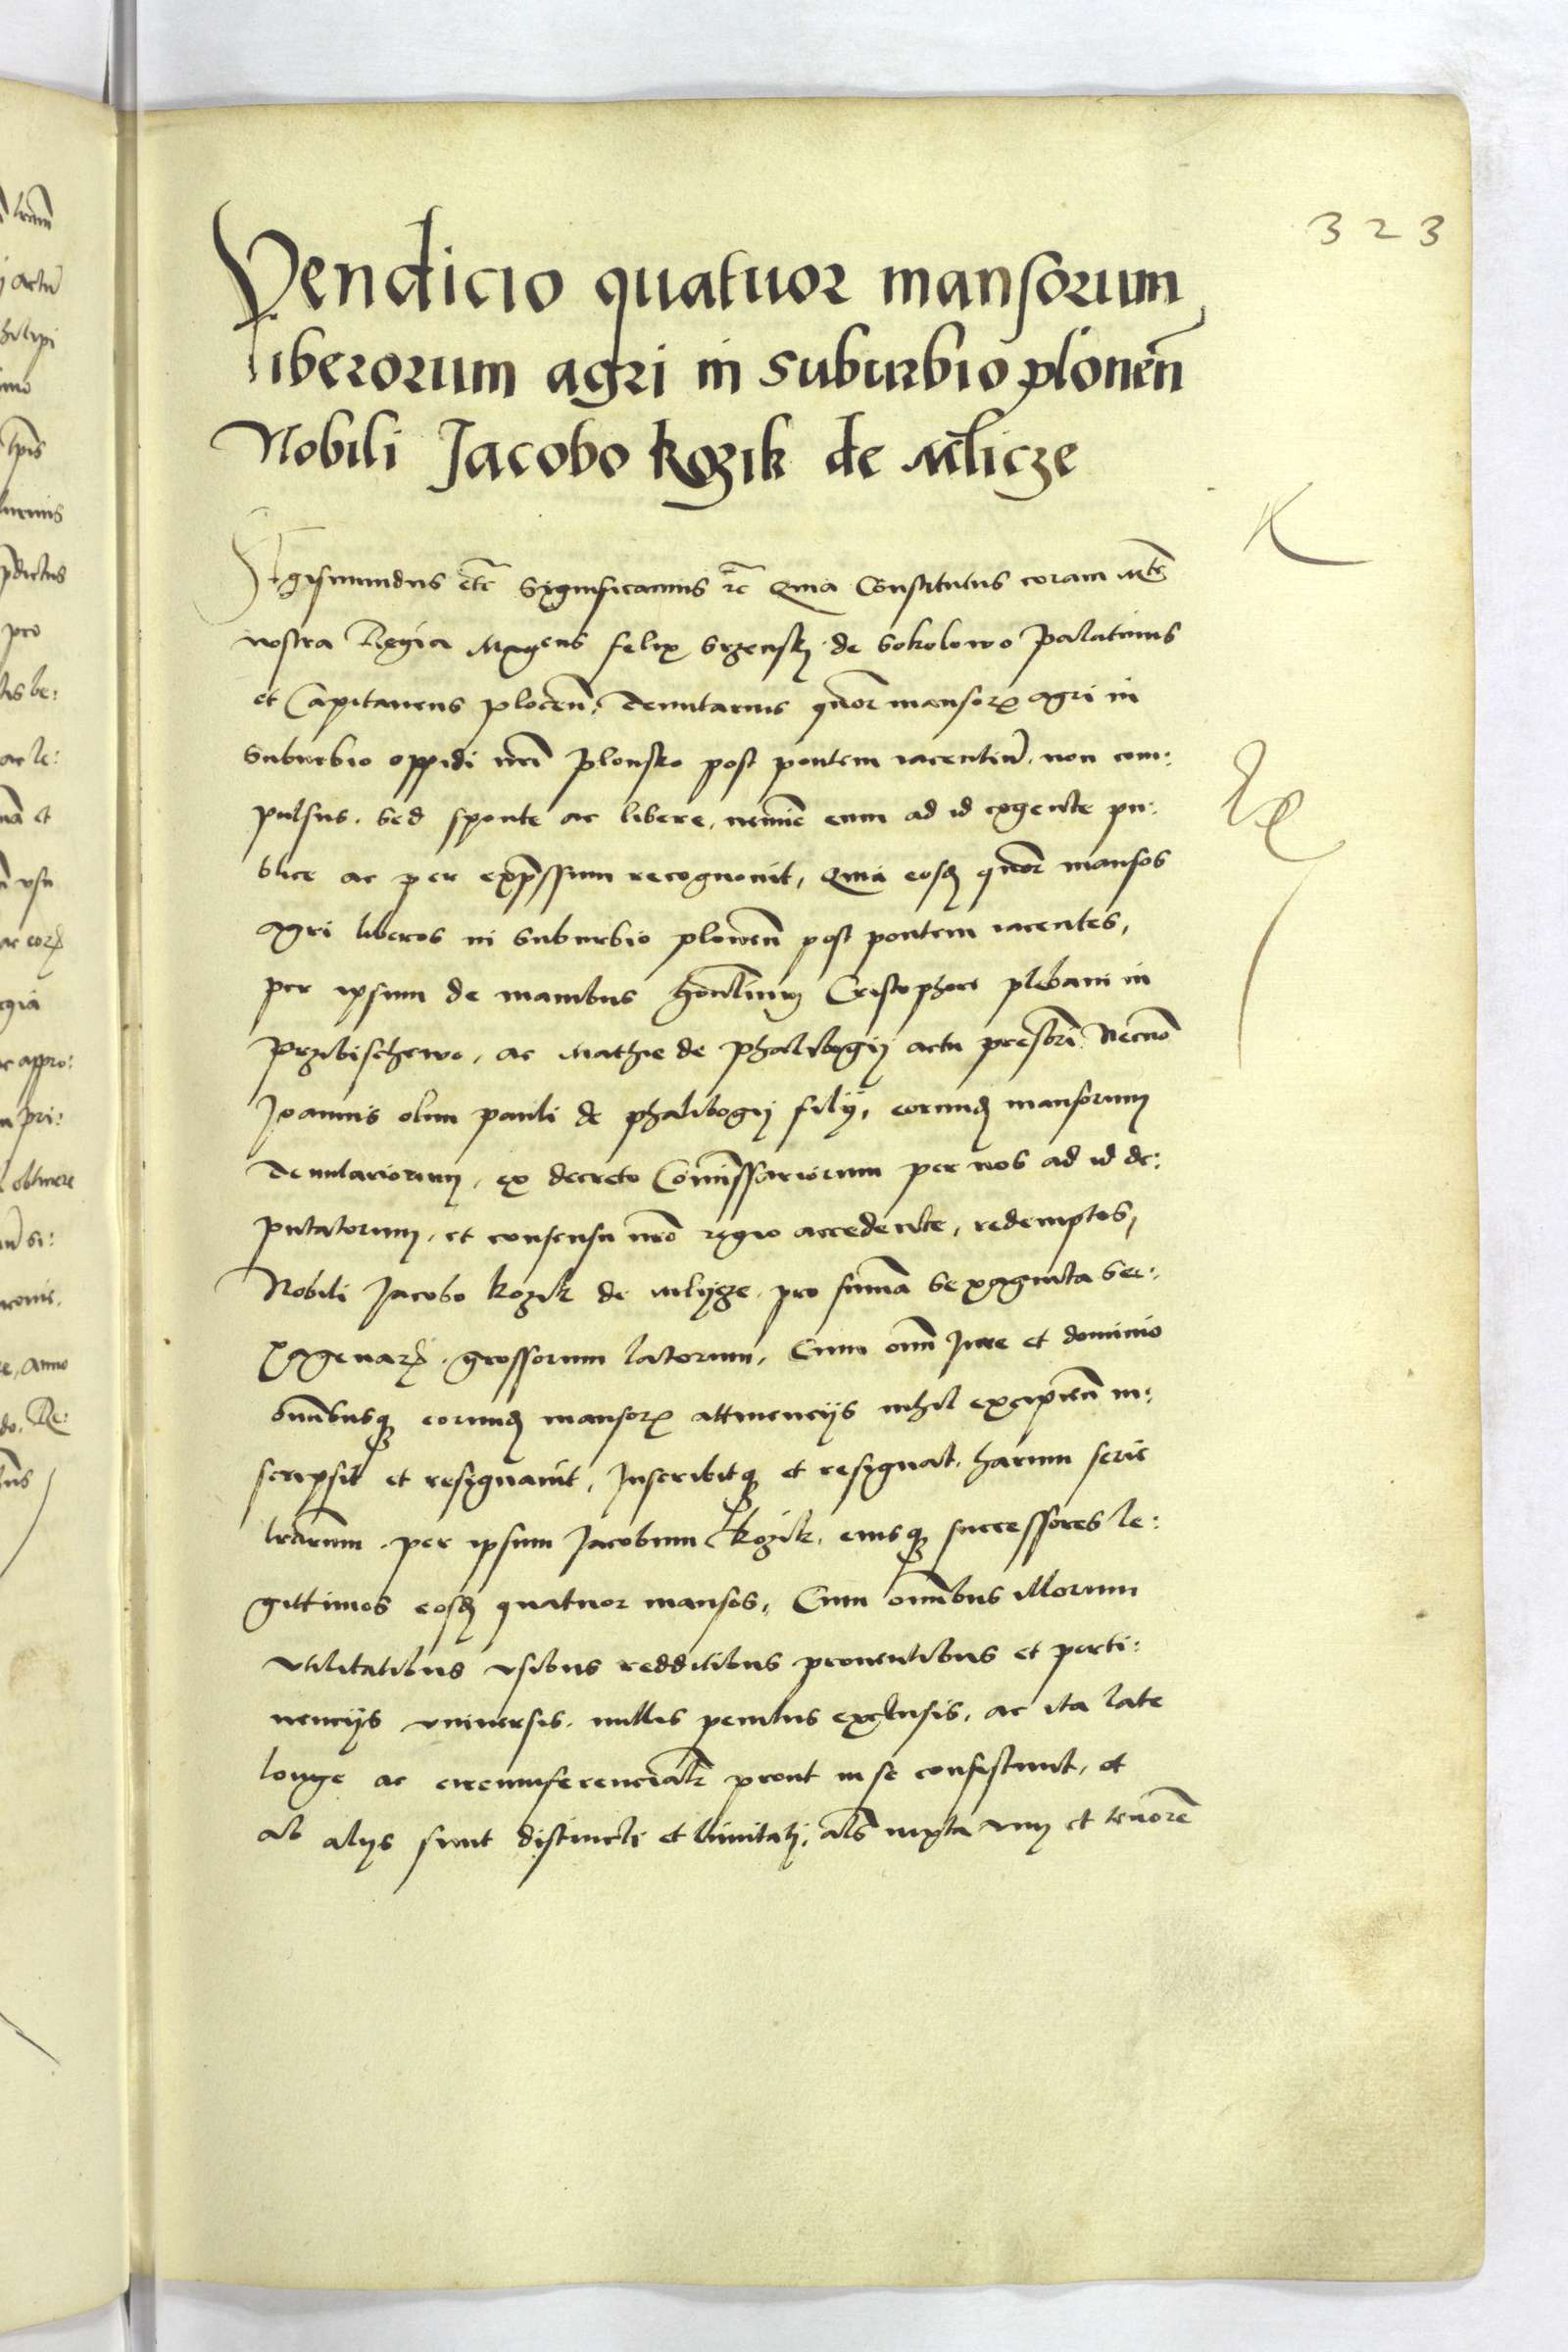 323
Vendicio quatuor mansorum
liberorum agri in suburbio plonen̄
Nobili Jacobo kozik de Mlicze
Sigismundus etc̄ Significamus rc̄ Quia Constitutus coram Mte
nostra Regia Magcus felix Srzensky de Sokolowo Palatinus
et Capitaneus plocen̄. Tenutarius quor mansorꝝ agri in
Suburbio oppidi nr̄i Plonsko post pontem iacentiū. non com:
pulsus. Sed sponte ac libere, nemīe eum ad id cogente pu:
blice ac per exp̄ssum recognouit, Quia eosdꝫ quor mansos
agri liberos in Suburbio plonen̄ post pontem iacentes,
per ipsum de manibus hon̄liuꝫ Cristophori plebani in
Przibischewo, ac Mathie de Phalibogij actu presbri. Necnō
Joannis olim pauli de phalibogij filij, eorundꝫ mansorum
Tenutariorum, ex decreto Com̄issariorum per nos ad id de:
putatorum, et consensu nr̄o regio accedente, redemptos,
Nobili Jacobo kozik de Mlycze. pro sum̄a Sexaginta Se:
xagenarꝝ. grossorum latorum, Cum om̄i Jure et dominio
om̄ibusqꝫ eorundꝫ mansorꝝ attinencijs nihil excipien̄ in:
scripsit et resignauit, Inscribitqꝫ et resignat. harum serie
lr̄arum. per ipsum Jacobum kozik. eiusqꝫ successores le:
gittimos eosdꝫ quatuor mansos, Cum om̄ibus illorum
vtilitatibus vsibus redditibus prouentibus et perti:
nencijs vniuersis. nullis penitus exclusis, ac ita late
longe ac circumferencialr̄ prout in se consistunt, et
ab alijs sunt distincti et limitati, als̄ iuxta vim et tenorē